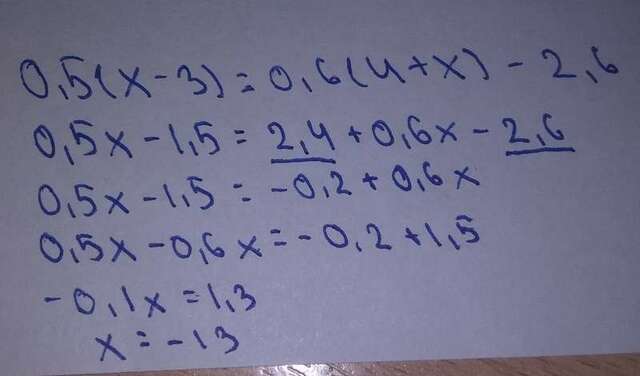 0,5(x-3)=0,6(4+x)-2,6
0,5x-1,5=2,4+0,6x-2,6
0,5x-1,5=-0,2+0,6x
0,5x-0,6x=-0,2+1,5
-0,1x=1,3
x=-13